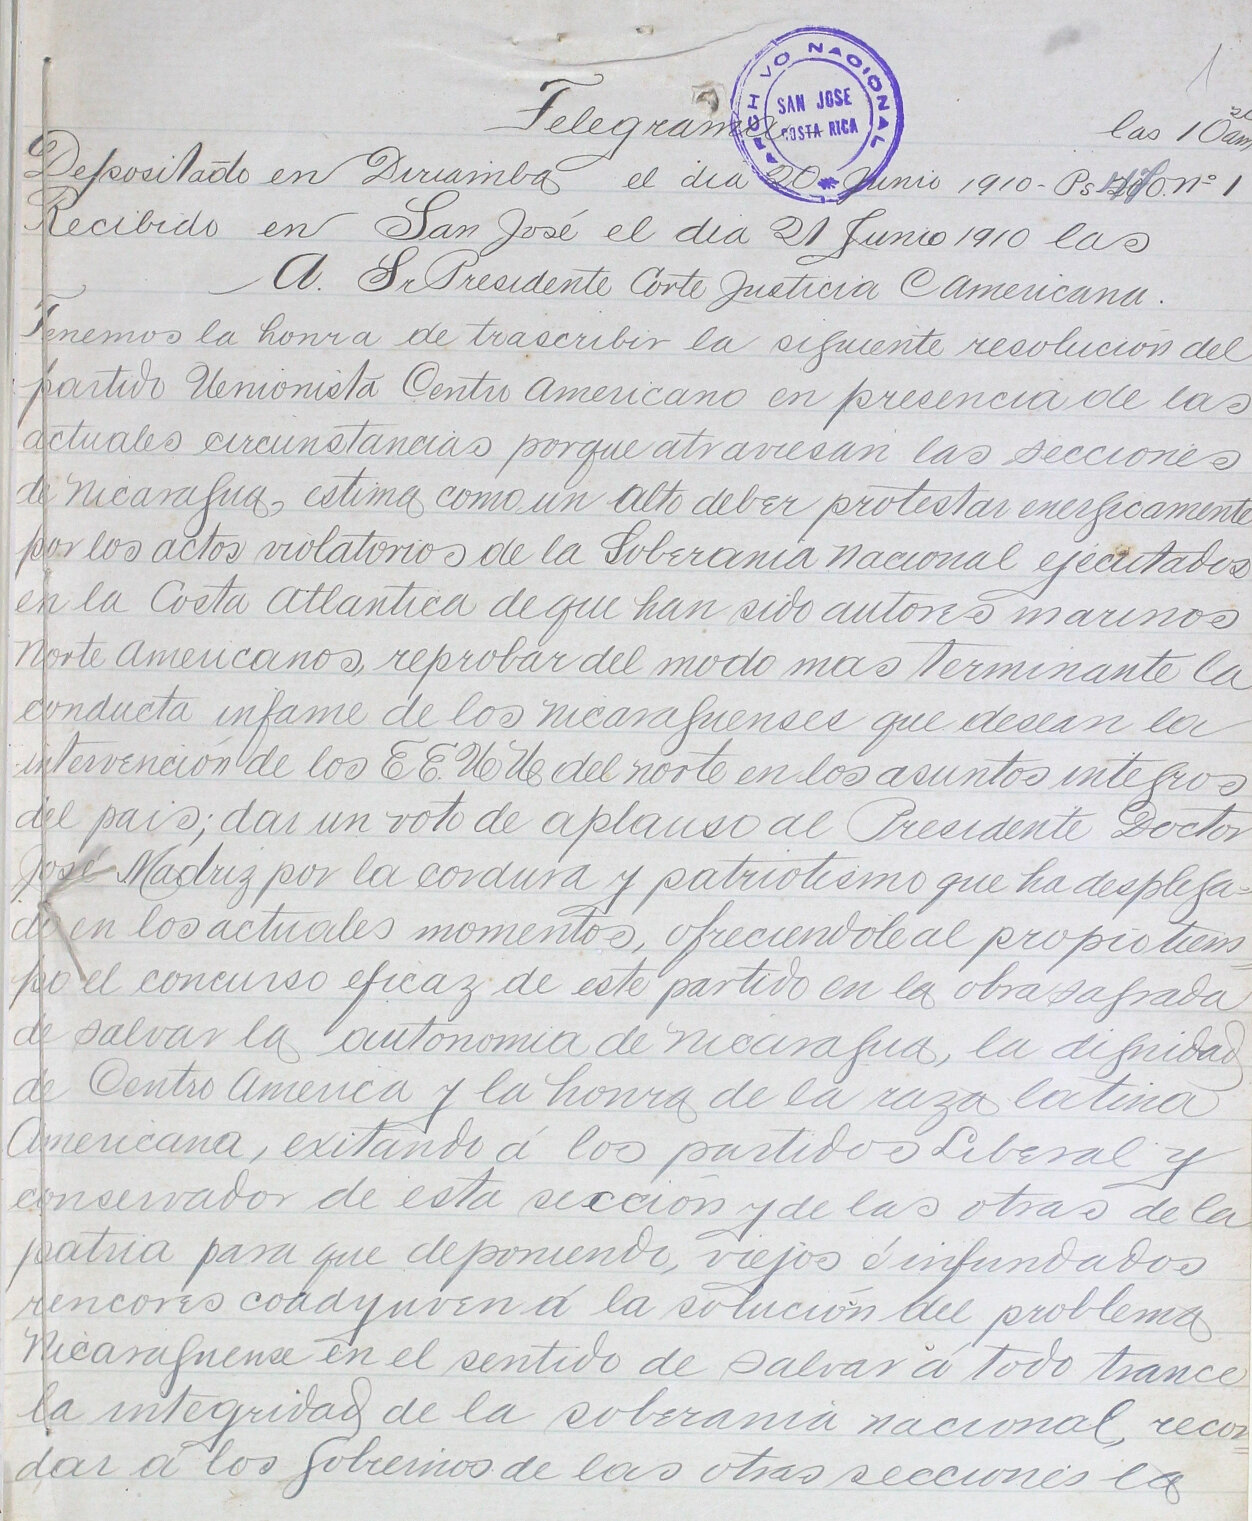 1
ARCHIVO NACIONAL
SAN JOSE
COSTA RICA
Telegrama
las 10 am
Depositado en Diriamba el dia 20 Junio 1910 - Ps. nº 1
Recibido en San José el dia 21 Junio 1910 las
A. Sr Presidente Corte Justicia C Americana.
Tenemos la honra de trascribir la siguiente resolución del
partido Unionista Centro Americano en presencia de las
actuales circunstancias porque atraviesan las secciones
de Nicaragua, estima como un alto deber protestar energicamente
por los actos violatorios de la Soberania Nacional ejecutados
en la Costa Atlantica de que han sido autores marinos
Norte Americanos, reprobar del modo mas terminante la
conducta infame de los nicaraguenses que desean la
intervención de los E E. U U del norte en los asuntos integros
del pais; dar un voto de aplauso al Presidente Doctor
José Madriz por la cordura y patriotismo que ha desplega=
do en los actuales momentos, ofreciendole al propio tiem=
po el concurso eficaz de este partido en la obra sagrada
de salvar la autonomia de Nicaragua, la dignidad
de Centro America y la honra de la raza latina
Americana, exitando á los partidos Liberal y
conservador de esta sección y de las otras de la
patria para que deponiendo, viejos é infundados
rencores coadyuven á la solución del problema
Nicaraguense en el sentido de salvar á todo trance
la integridad de la soberania nacional, recor=
dar á los Gobiernos de las otras secciones la